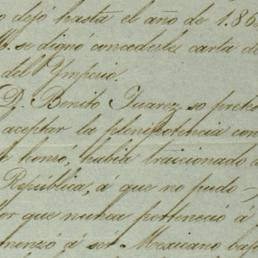 o dejó hasta el año de 186
M. se dignó concederles carta d
del Ymperio.
D. Benito Juarez, so prete
aceptar la plenipotencia con
honró, había traicionado á
República, á que no pudo
or que nunca perteneció á
menzó á ser Mexicano baj